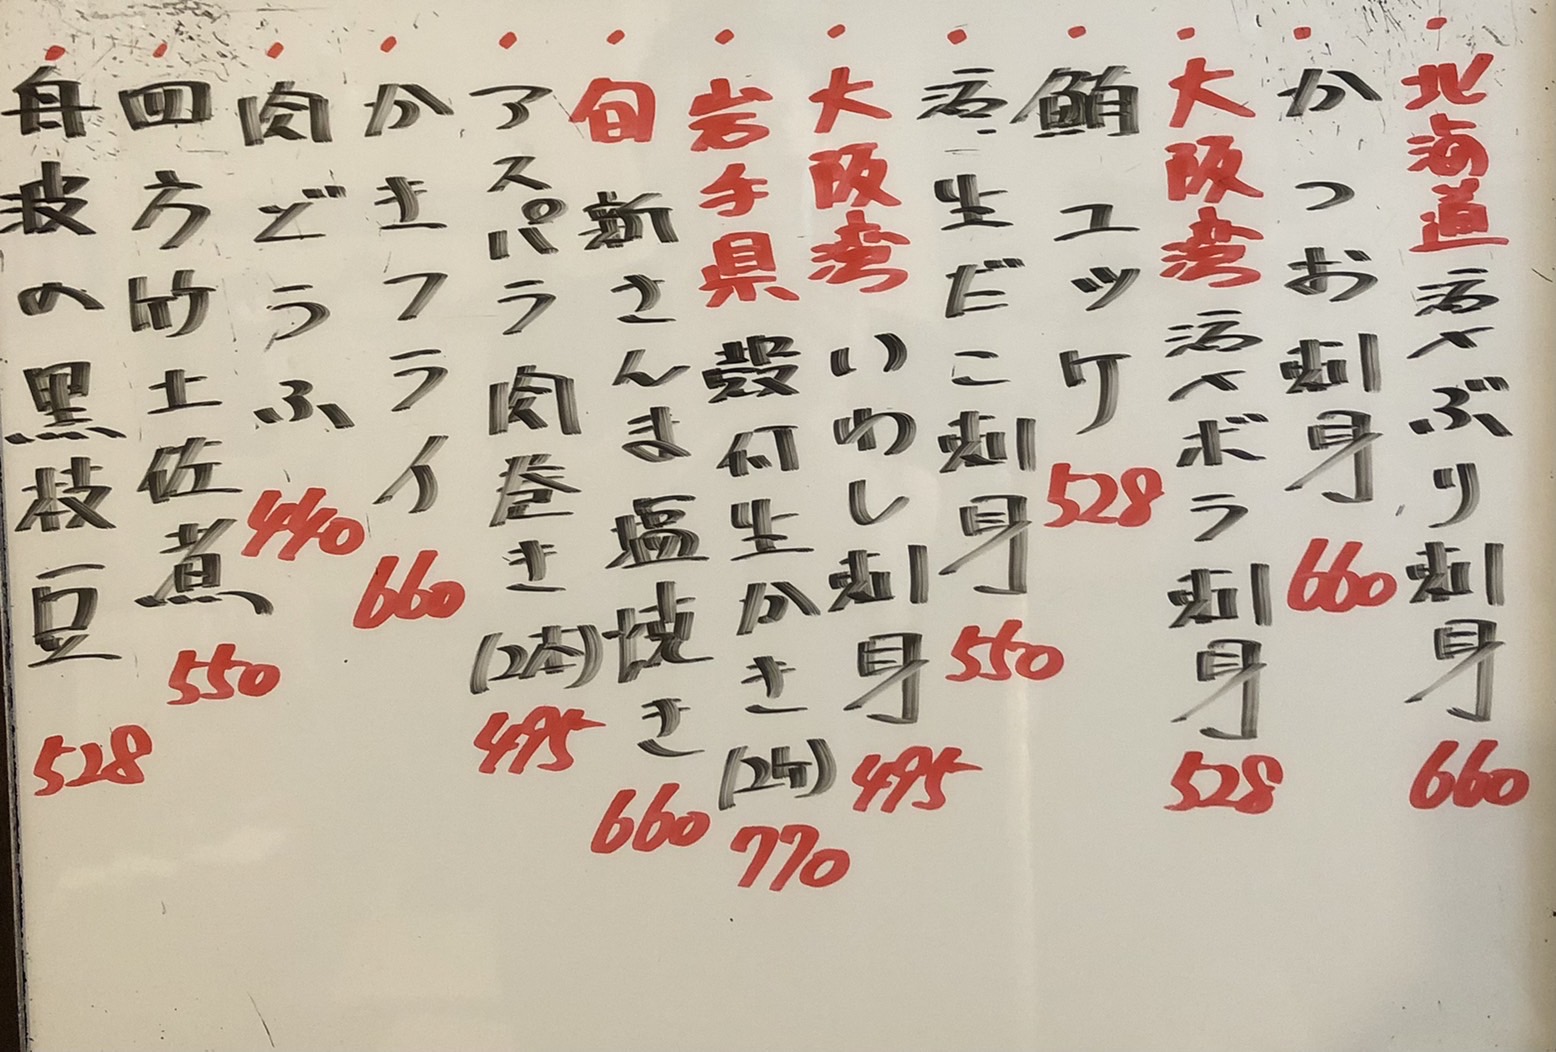 ・北海道活〆ぶり刺身 660
・かつお刺身 660
・大阪湾活〆ボラ刺身 528
・鮪ユッケ 528
・活生だこ刺身 550
・大阪湾いわし刺身 495
・岩手県殻付生かき(2ケ) 770
・旬新さんま塩焼き 660
・アスパラ肉巻き(2本) 495
・かきフライ 660
・肉どうふ 440
・四方竹土佐煮 550
・丹波の黒枝豆 528